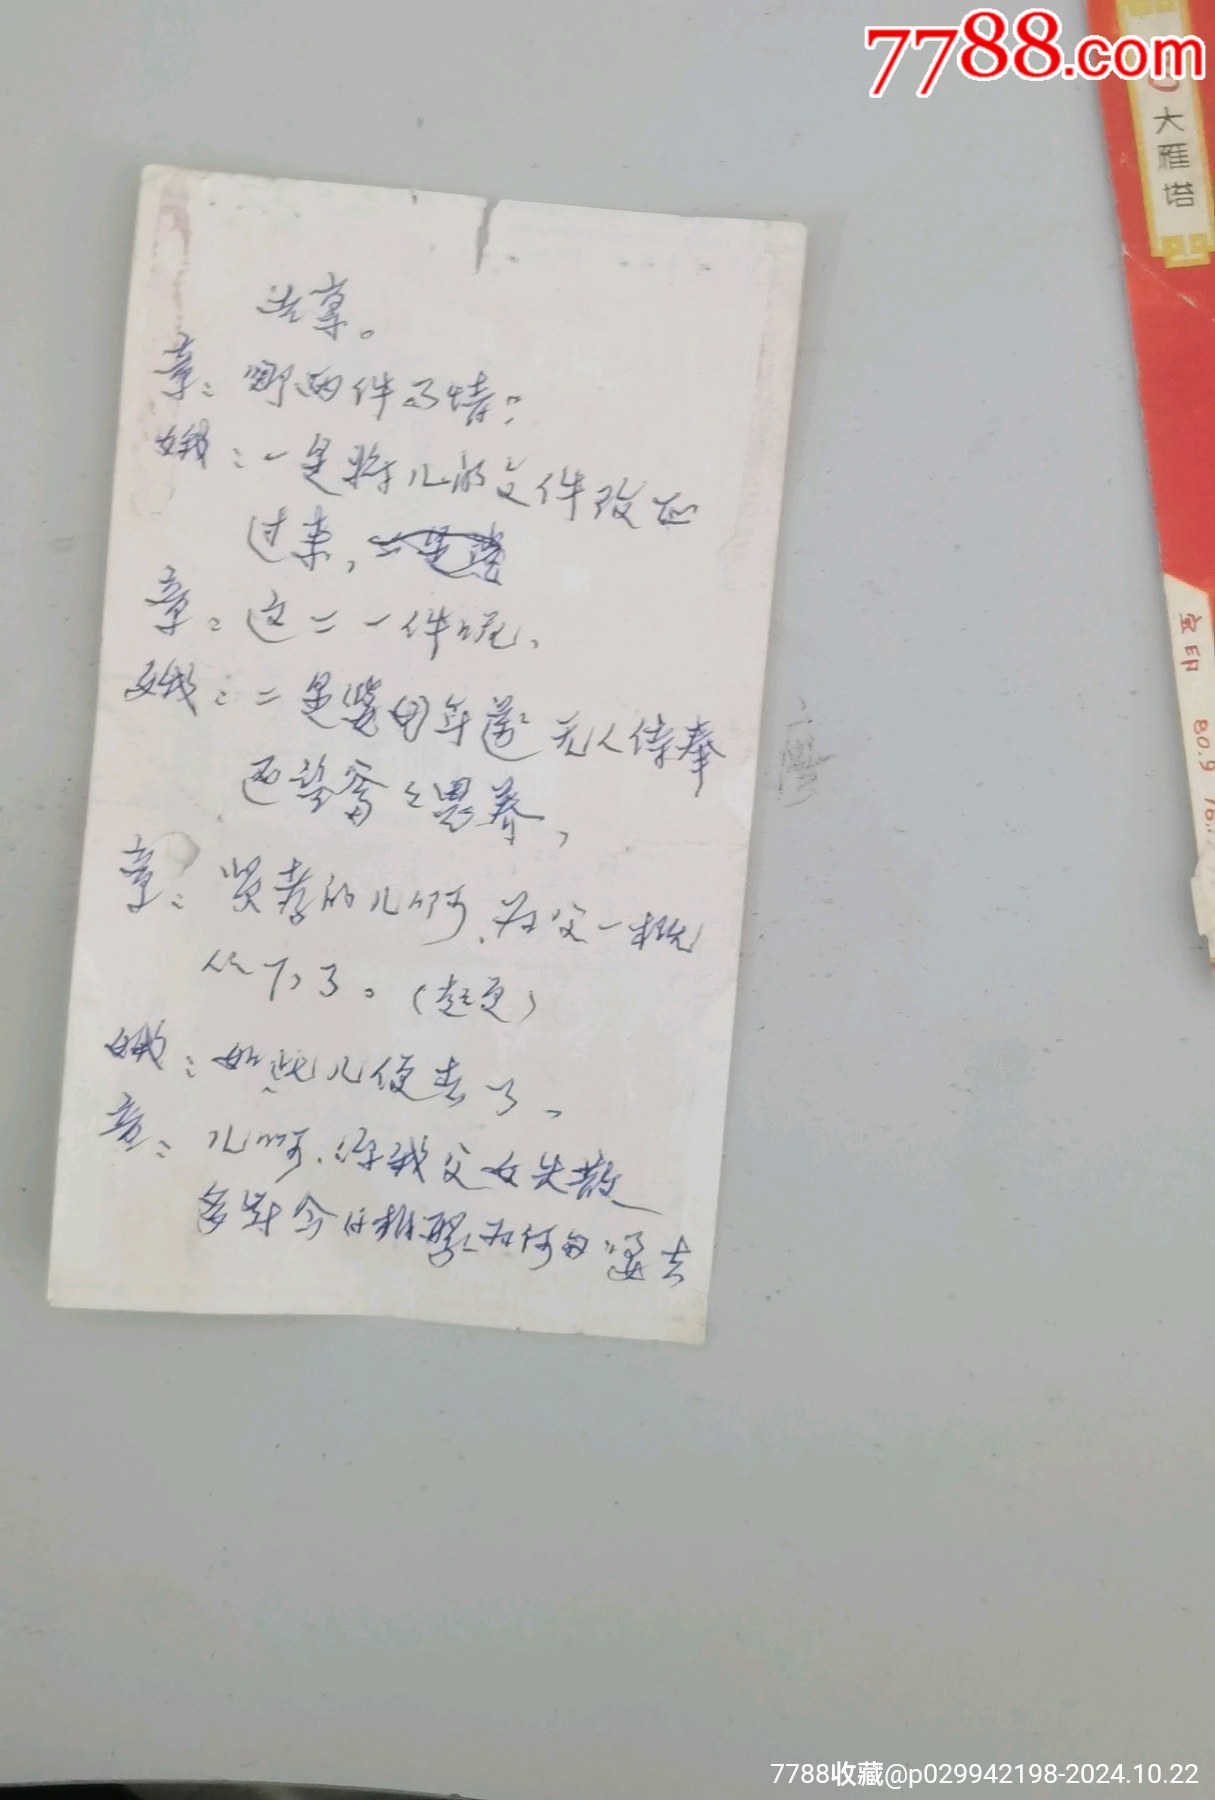 7788.com
大雁塔
章：哪两件事情？
娥：一是将儿的文件改正
过来，
章：这二一件呢、
娥：二是婆母年迈无人侍奉
还望爹爹恩养，
章：贤孝的儿啊、为父一概
从下了。（起更）
娥：如此儿便去了、
章：儿啊、你我父女失散
多时今日相聚为何匆匆要去
宝印 80.9
7788收藏@p029942198-2024.10.22